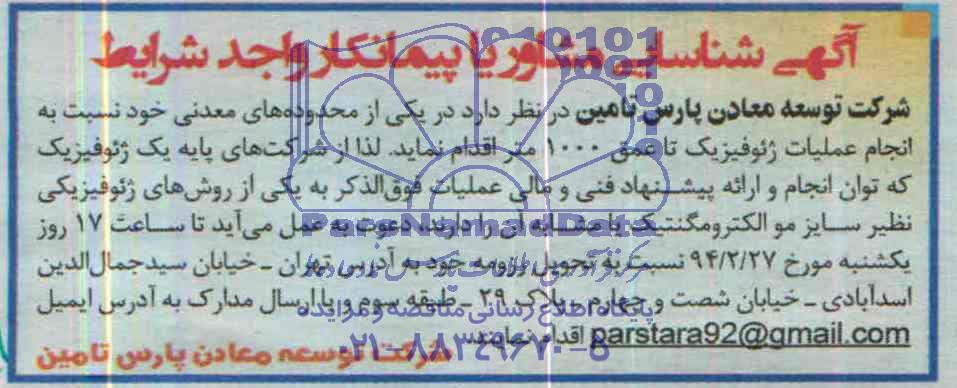 آگهی شناسایی مشاور یا پیمانکار واجد شرایط
شرکت توسعه معادن پارس تامین در نظر دارد در یکی از محدوده‌های معدنی خود نسبت به
انجام عملیات ژئوفیزیک تا عمق ۱۰۰۰ متر اقدام نماید. لذا از شرکت‌های پایه یک ژئوفیزیک
که توان انجام و ارائه پیشنهاد فنی و مالی عملیات فوق‌الذکر به یکی از روش‌های ژئوفیزیکی
نظیر سایز مو الکترومگنتیک یا مشابه آن را دارند، دعوت به عمل می‌آید تا ساعت ۱۷ روز
یکشنبه مورخ ۹۴/۲/۲۷ نسبت به تحویل رزومه خود به آدرس تهران ـ خیابان سیدجمال‌الدین
اسدآبادی ـ خیابان شصت و چهارم ـ پلاک ۲۹ ـ طبقه سوم و یا ارسال مدارک به آدرس ایمیل
parstara92@gmail.com اقدام نمایند.
شرکت توسعه معادن پارس تامین
ParsNamadData
پایگاه اطلاع رسانی مناقصه و مزایده
۰۲۱-۸۸۳۴۹۶۷۰-۵